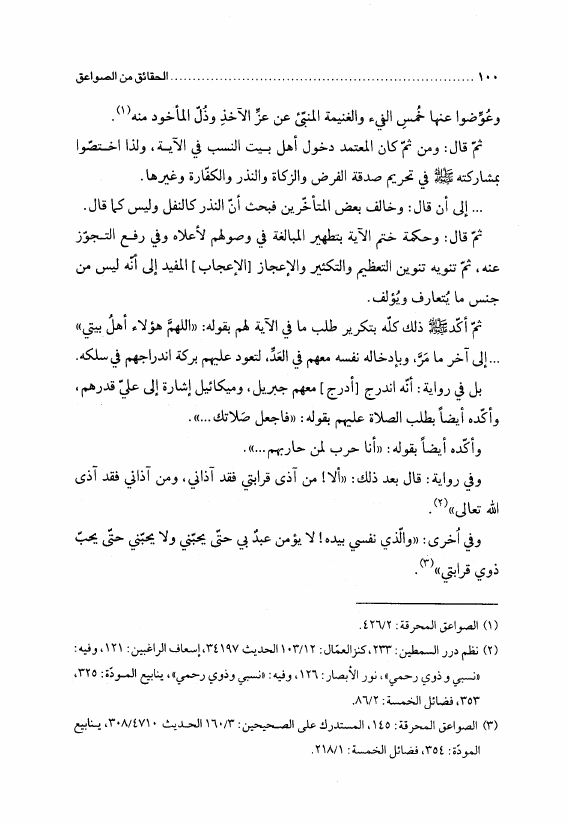 ١٠٠ ................................................................ الحقائق من الصواعق
وعُوِّضوا عنها خُمسِ الفيء والغنيمة المنبّئ عن عزِّ الآخذِ وذُلّ المأخود منه»(١).
ثمّ قال: ومن ثمّ كان المعتمد دخول أهل بيت النسب في الآية، ولذا اختصّوا
بمشاركته ﷺ في تحريم صدقة الفرض والزكاة والنذر والكفّارة وغيرها.
... إلى أن قال: وخالف بعض المتأخّرين فبحث أنّ النذر كالنفل وليس كما قال.
ثمّ قال: وحكمة ختم الآية بتطهير المبالغة في وصولهم لأعلاه وفي رفع التجوّز
عنه، ثمّ تنويه تنوين التعظيم والتكثير والإعجاز [الإعجاب] المفيد إلى أنّه ليس من
جنس ما يُتعارف ويُؤلف.
ثمّ أكّد ﷺ ذلك كلّه بتكرير طلب ما في الآية لهم بقوله: «اللهمَّ هؤلاء أهلُ بيتي»
...إلى آخر ما مَرَّ، وبإدخاله نفسه معهم في العَدِّ، لتعود عليهم بركة اندراجهم في سلكه.
بل في رواية: أنّه اندرج [أدرج] معهم جبريل، وميكائيل إشارة إلى عليّ قدرهم،
وأكّده أيضاً بطلب الصلاة عليهم بقوله: «فاجعل صَلاتك...».
وأكّده أيضاً بقوله: «أنا حرب لمن حاربهم...».
وفي رواية: قال بعد ذلك: «ألا! من آذى قرابتي فقد آذاني، ومن آذاني فقد آذى
الله تعالى»(٢).
وفي أُخرى: «والّذي نفسي بيده! لا يؤمن عبدٌ بي حتّى يحبّني ولا يحبّني حتّى يحبّ
ذوي قرابتي»(٣).
(١) الصواعق المحرقة: ٤٢٦/٢.
(٢) نظم درر السمطين: ٢٣٣، كنزالعمّال: ١٠٣/١٢ الحديث ٣٤١٩٧، إسعاف الراغبين: ١٢١، وفيه:
«نسبي و ذوي رحمي»، نور الأبصار: ١٢٦، وفيه: «نسبي وذوي رحمي»، ينابيع المودّة: ٣٢٥،
٣٥٣، فضائل الخمسة: ٨٦/٢.
(٣) الصواعق المحرقة: ١٤٥، المستدرك على الصحيحين: ١٦٠/٣ الحديث ٣٠٨/٤٧١٠، ينابيع
المودّة: ٣٥٤، فضائل الخمسة: ٢١٨/١.